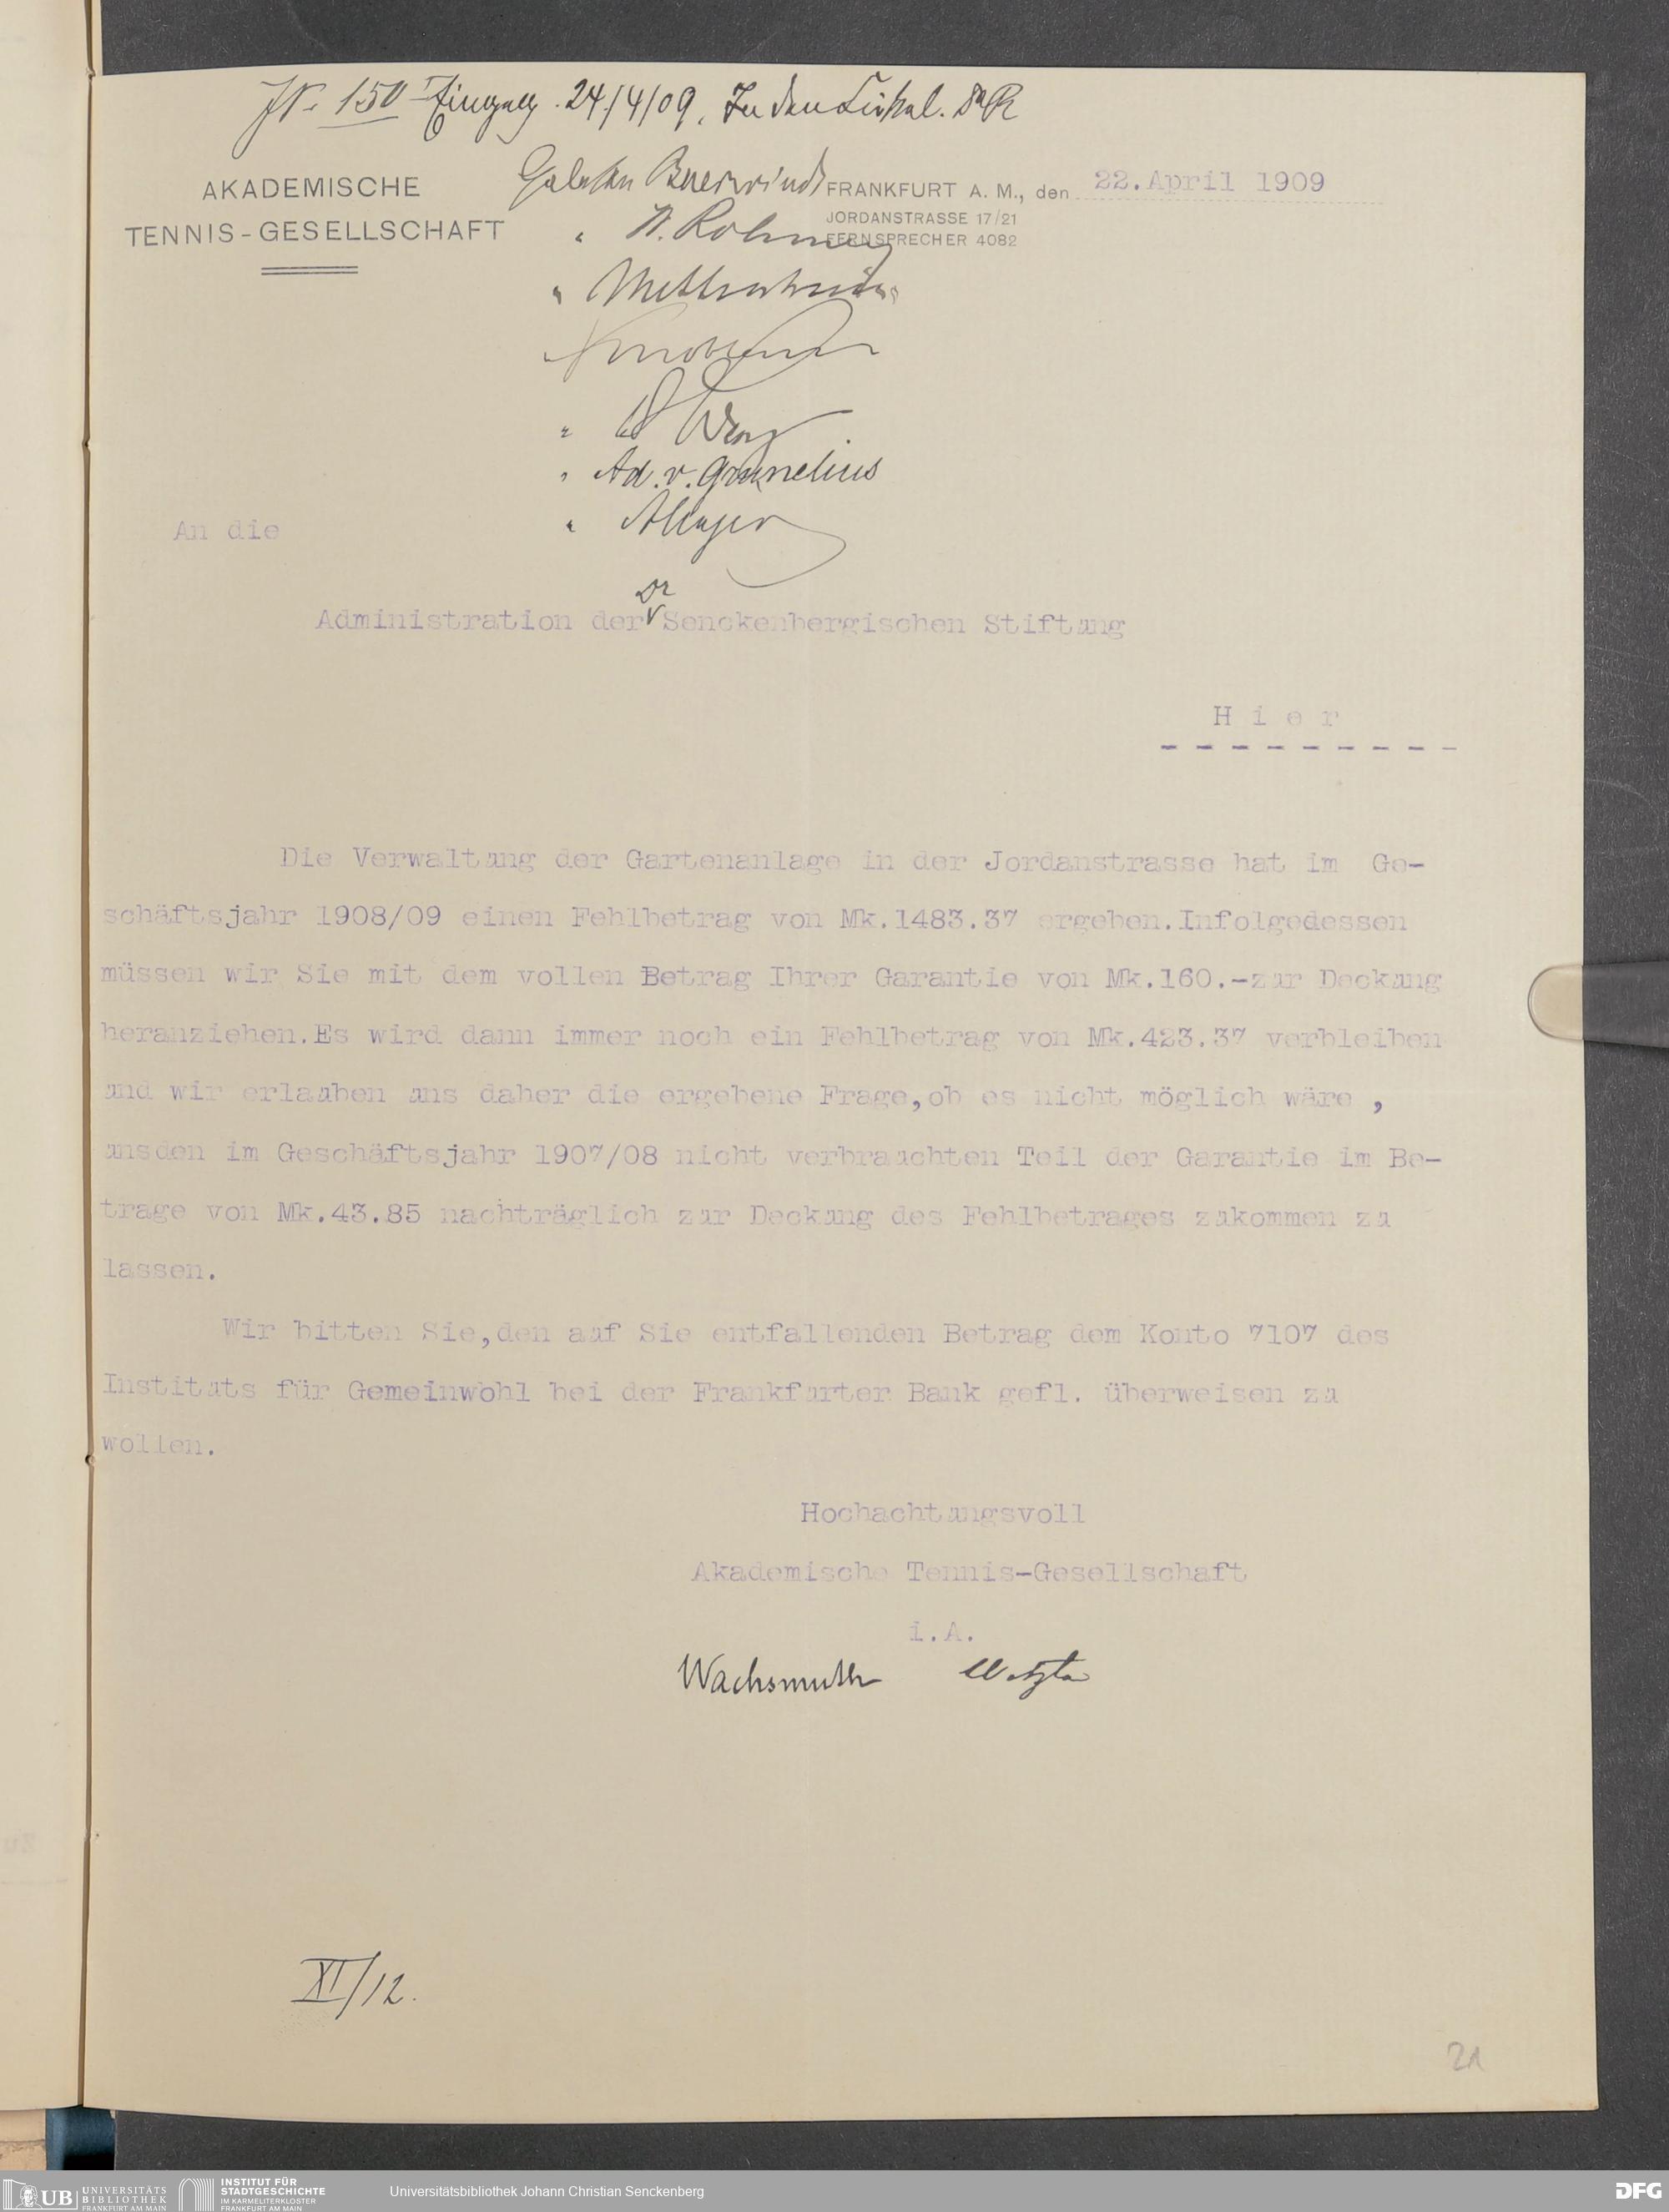 JN. 150 Eingang. 24/4/09. Zu den Zirkul. Dr R
Gelesen Beerwind
AKADEMISCHE
TENNIS-GESELLSCHAFT
FRANKFURT A. M., den 22.April 1909
JORDANSTRASSE 17/21
FERNSPRECHER 4082
"
"
"
" Ad. v. Grunelius
"
An die
Dr
Administration der Senckenbergischen Stiftung
H i e r
- - - - - - - - -
Die Verwaltung der Gartenanlage in der Jordanstrasse hat im Ge-
schäftsjahr 1908/09 einen Fehlbetrag von Mk.1483.37 ergeben.Infolgedessen
müssen wir Sie mit dem vollen Betrag Ihrer Garantie von Mk.160.-zur Deckung
heranziehen.Es wird dann immer noch ein Fehlbetrag von Mk.423.37 verbleiben
und wir erlauben uns daher die ergebene Frage,ob es nicht möglich wäre ,
unsden im Geschäftsjahr 1907/08 nicht verbrauchten Teil der Garantie im Be-
trage von Mk.43.85 nachträglich zur Deckung des Fehlbetrages zukommen zu
lassen.
Wir bitten Sie,den auf Sie entfallenden Betrag dem Konto 7107 des
Instituts für Gemeinwohl bei der Frankfurter Bank gefl. überweisen zu
wollen.
Hochachtungsvoll
Akademische Tennis-Gesellschaft
i.A.
Wachsmuth
XI/12.
21
UB UNIVERSITÄTS
BIBLIOTHEK
FRANKFURT AM MAIN
INSTITUT FÜR
STADTGESCHICHTE
IM KARMELITERKLOSTER
FRANKFURT AM MAIN
Universitätsbibliothek Johann Christian Senckenberg
DFG